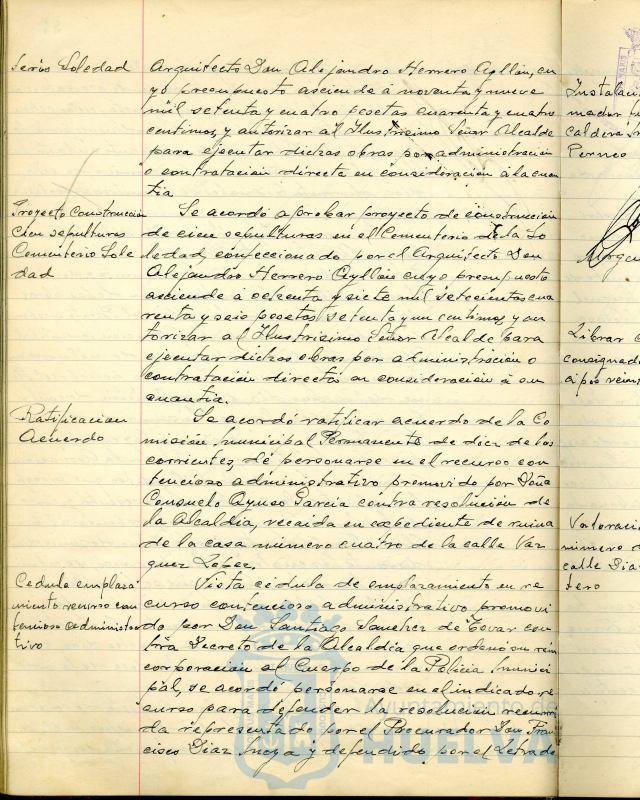 Soledad
Arquitecto Don Alejandro Herrero Ayllón, cu
yo presupuesto asciende á noventa y nueve
mil setenta y cuatro pesetas cuarenta y cuatro
centimos, y autorizar al Ilustrisimo Señor Alcalde
para ejecutar dichas obras por administración
o contratación directa en consideración á la cuan
tia.
Proyecto Construccion
cien sepulturas
Cementerio Sole
dad
Se acordó aprobar proyecto de construcción
de cien sepulturas en el Cementerio de la So
ledad, confeccionado por el Arquitecto Don
Alejandro Herrero Ayllón cuyo presupuesto
asciende á ochenta y siete mil setecientas cua
renta y seis pesetas setenta y un centimos y au
torizar al Ilustrisimo Señor Alcalde para
ejecutar dichas obras por administración o
contratación directa en consideración á su
cuantia.
Ratificacion
Acuerdo
Se acordó ratificar acuerdo de la Co
misión municipal Permanente de diez de los
corrientes, de personarse en el recurso con
tencioso administrativo promovido por Doña
Consuelo Ayuso Garcia contra resolución de
la Alcaldia, recaida en expediente de ruina
de la casa número cuatro de la calle Vaz
quez Lopez.
Cedula emplaza
miento recurso con
tencioso administra
tivo
Vista cédula de emplazamiento en re
curso contencioso administrativo promovi
do por Don Santiago Sanchez de Tovar con
tra Decreto de la Alcaldia que ordenó su rein
corporación al Cuerpo de la Policia munici
pal, se acordó personarse en el indicado re
curso para defender la resolución recurri
da representado por el Procurador Don Fran
cisco Diaz y defendido por el Letrado
Ayuntamiento de
HUELVA
Instalaci
caldera
Perneo
Librar
consignad
Valoraci
número
calle Dia
tero